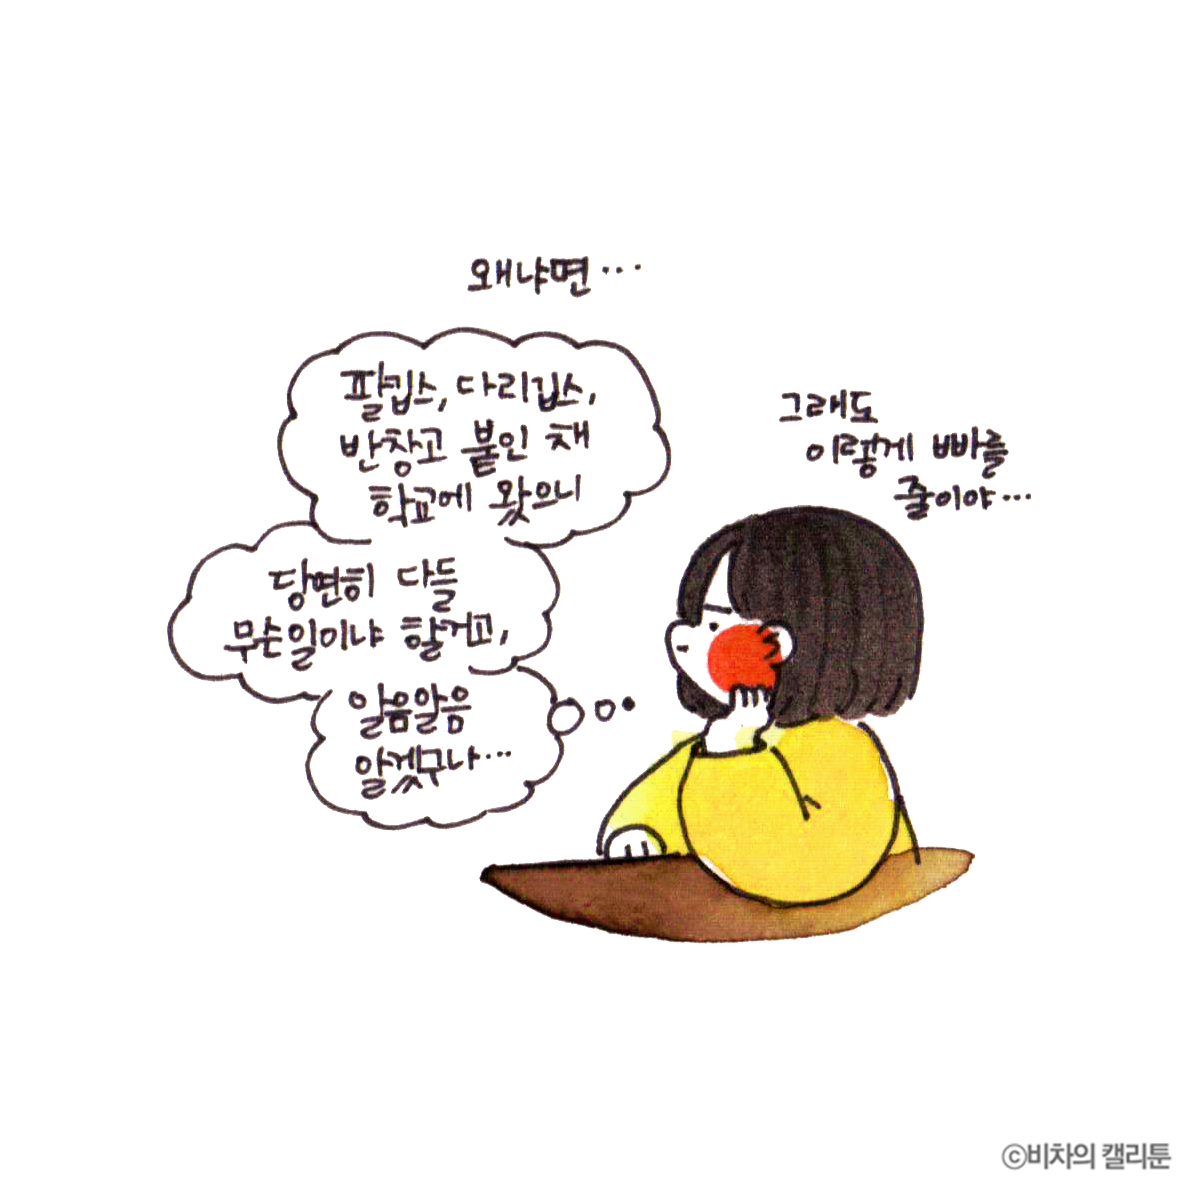 왜냐면...
팔깁스, 다리깁스,
반창고 붙인 채
학교에 왔으니
당연히 다들
무슨일이냐 할거고,
알음알음
알겠구나...
그래도
이렇게 빠를
줄이야...
©비차의 캘리툰